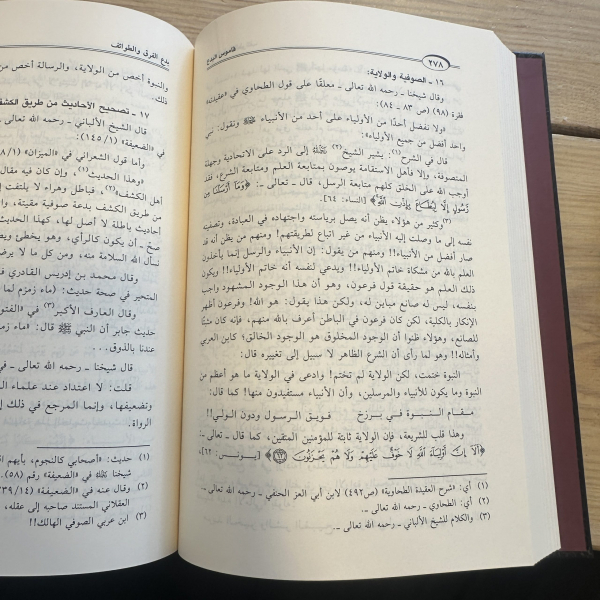 ٢٧٨
قاموس البدع
١٦ ـ الصوفية والولاية:
وقال شيخنا ـ رحمه الله تعالى ـ معلقًا على قول الطحاوي في «عقيدته»
فقرة (٩٨) (ص ٨٣ ـ ٨٤):
«ولا نفضل أحدًا من الأولياء على أحد من الأنبياء ﷺ ونقول: نبي
واحد أفضل من جميع الأولياء»:
قال في الشرح(١): يشير الشيخ(٢) ﵀ إلى الرد على الاتحادية وجهلة
المتصوفة، وإلا فأهل الاستقامة يوصون بمتابعة العلم ومتابعة الشرع، فقد
أوجب الله على الخلق كلهم متابعة الرسل، قال ـ تعالى ـ: ﴿وَمَآ أَرْسَلْنَا مِن
رَّسُولٍ إِلَّا لِيُطَاعَ بِإِذْنِ اللَّهِ﴾ [النساء: ٦٤].
(٣)وكثير من هؤلاء يظن أنه يصل برياسته واجتهاده في العبادة، وتصفيته
نفسه إلى ما وصلت إليه الأنبياء من غير اتباع لطريقتهم! ومنهم من يظن أنه قد
صار أفضل من الأنبياء!! ومنهم من يقول: إن الأنبياء والرسل إنما يأخذون
العلم بالله من مشكاة خاتم الأولياء!! ويدعي لنفسه أنه خاتم الأولياء!! ويكون
ذلك العلم هو حقيقة قول فرعون، وهو أن هذا الوجود المشهود واجب
بنفسه، ليس له صانع مباين له، ولكن هذا يقول: هو الله! وفرعون أظهر
الإنكار بالكلية، لكن كان فرعون في الباطن أعرف بالله منهم، فإنه كان مثبتًا
للصانع، وهؤلاء ظنوا أن الوجود المخلوق هو الوجود الخالق؟ كابن العربي
وأمثاله!! وهو لما رأى أن الشرع الظاهر لا سبيل إلى تغييره قال:
النبوة ختمت، لكن الولاية لم تختم! وادعى في الولاية ما هو أعظم من
النبوة وما يكون للأنبياء والمرسلين، وأن الأنبياء مستفيدون منها! كما قال:
مقام النبوة في برزخ فويق الرسول ودون الولي!!
وهذا قلب للشريعة، فإن الولاية ثابتة للمؤمنين المتقين، كما قال ـ تعالى ـ:
﴿أَلَآ إِنَّ أَوْلِيَآءَ اللَّهِ لَا خَوْفٌ عَلَيْهِمْ وَلَا هُمْ يَحْزَنُونَ ﴿٦٢﴾﴾ [يونس: ٦٢]،
(١) أي: «شرح العقيدة الطحاوية» (ص٤٩٢) لابن أبي العز الحنفي ـ رحمه الله تعالى ـ.
(٢) أي: الطحاوي ـ رحمه الله تعالى ـ.
(٣) والكلام للشيخ الألباني ـ رحمه الله تعالى ـ.
بدع الفرق والطوائف
والنبوة أخص من الولاية، والرسالة أخص من
ذلك.
١٧ ـ تصحيح الأحاديث من طريق الكشف
قال الشيخ الألباني ـ رحمه الله تعالى ـ
في «الضعيفة» (١/ ١٤٥):
وأما قول الشعراني في «الميزان» (١/
«وهذا الحديث(١)، وإن كان فيه مقال
أهل الكشف»(٢)، فباطل وهراء لا يلتفت إ
من طريق الكشف بدعة صوفية مقيتة، وا
أحاديث باطلة لا أصل لها، كهذا الحديث
صح ـ أن يكون كالرأي، وهو يخطئ وي
نسأل الله السلامة منه، ومن كل ما لا يرض
وقال محمد بن إدريس القادري في
المتحير في صحة حديث: «ماء زمزم لما
وقال العارف الأكبر(٣) في «الفتو
حديث جابر أن النبي ﷺ قال: «ماء ز
عندنا بالذوق...
قال شيخنا ـ رحمه الله تعالى ـ في
قلت: لا اعتداد عند علماء ال
وتضعيفها، وإنما المرجع في ذلك إ
الرواة.
(١) حديث: «أصحابي كالنجوم، بأيهم ا
شيخنا ﵀ في «الضعيفة» رقم (٥٨).
(٢) وقال عنه في «الضعيفة» (١٤/
العقلاني المستند صاحبه إلى عقله،
(٣) ابن عربي الصوفي الهالك!!